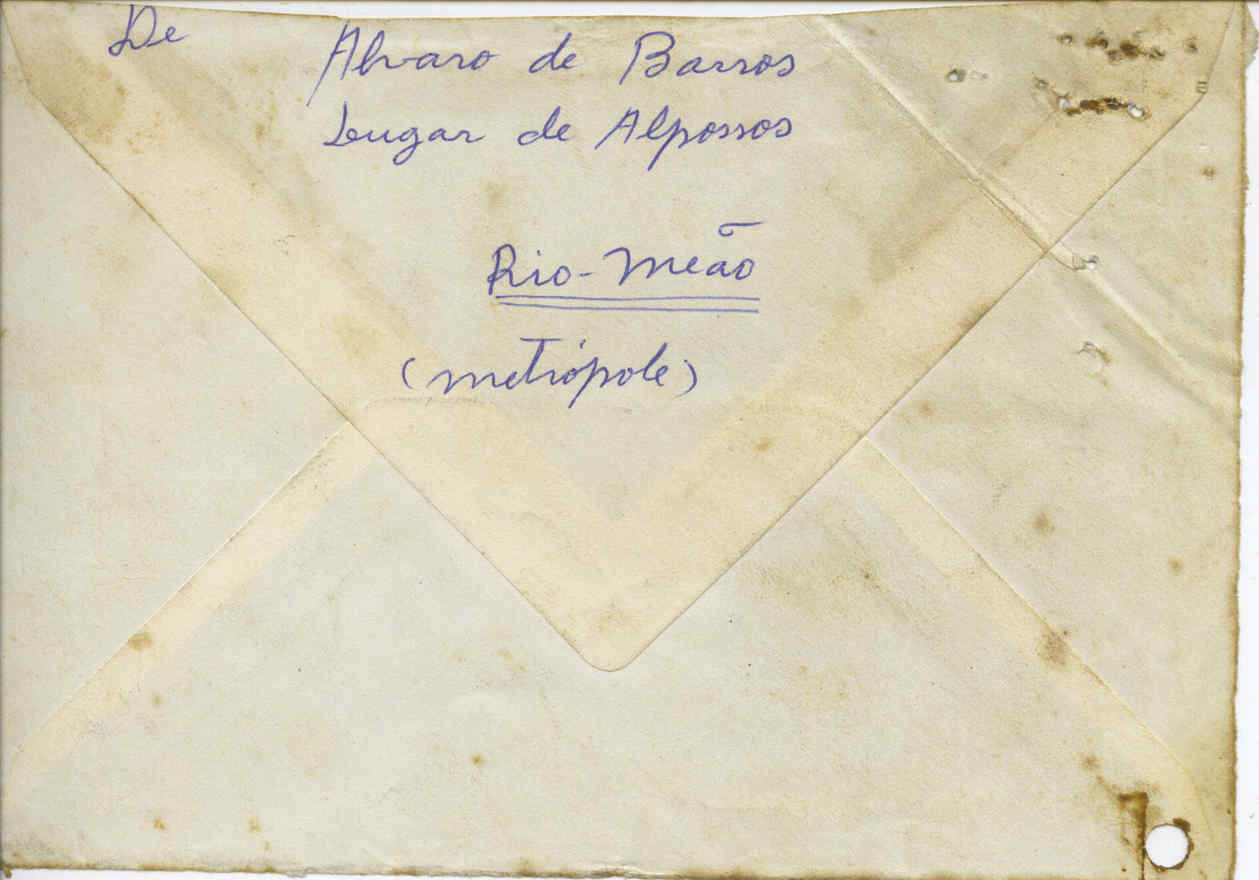 De Alvaro de Barros
Lugar de Alpossos
Rio-Meão
(metrópole)